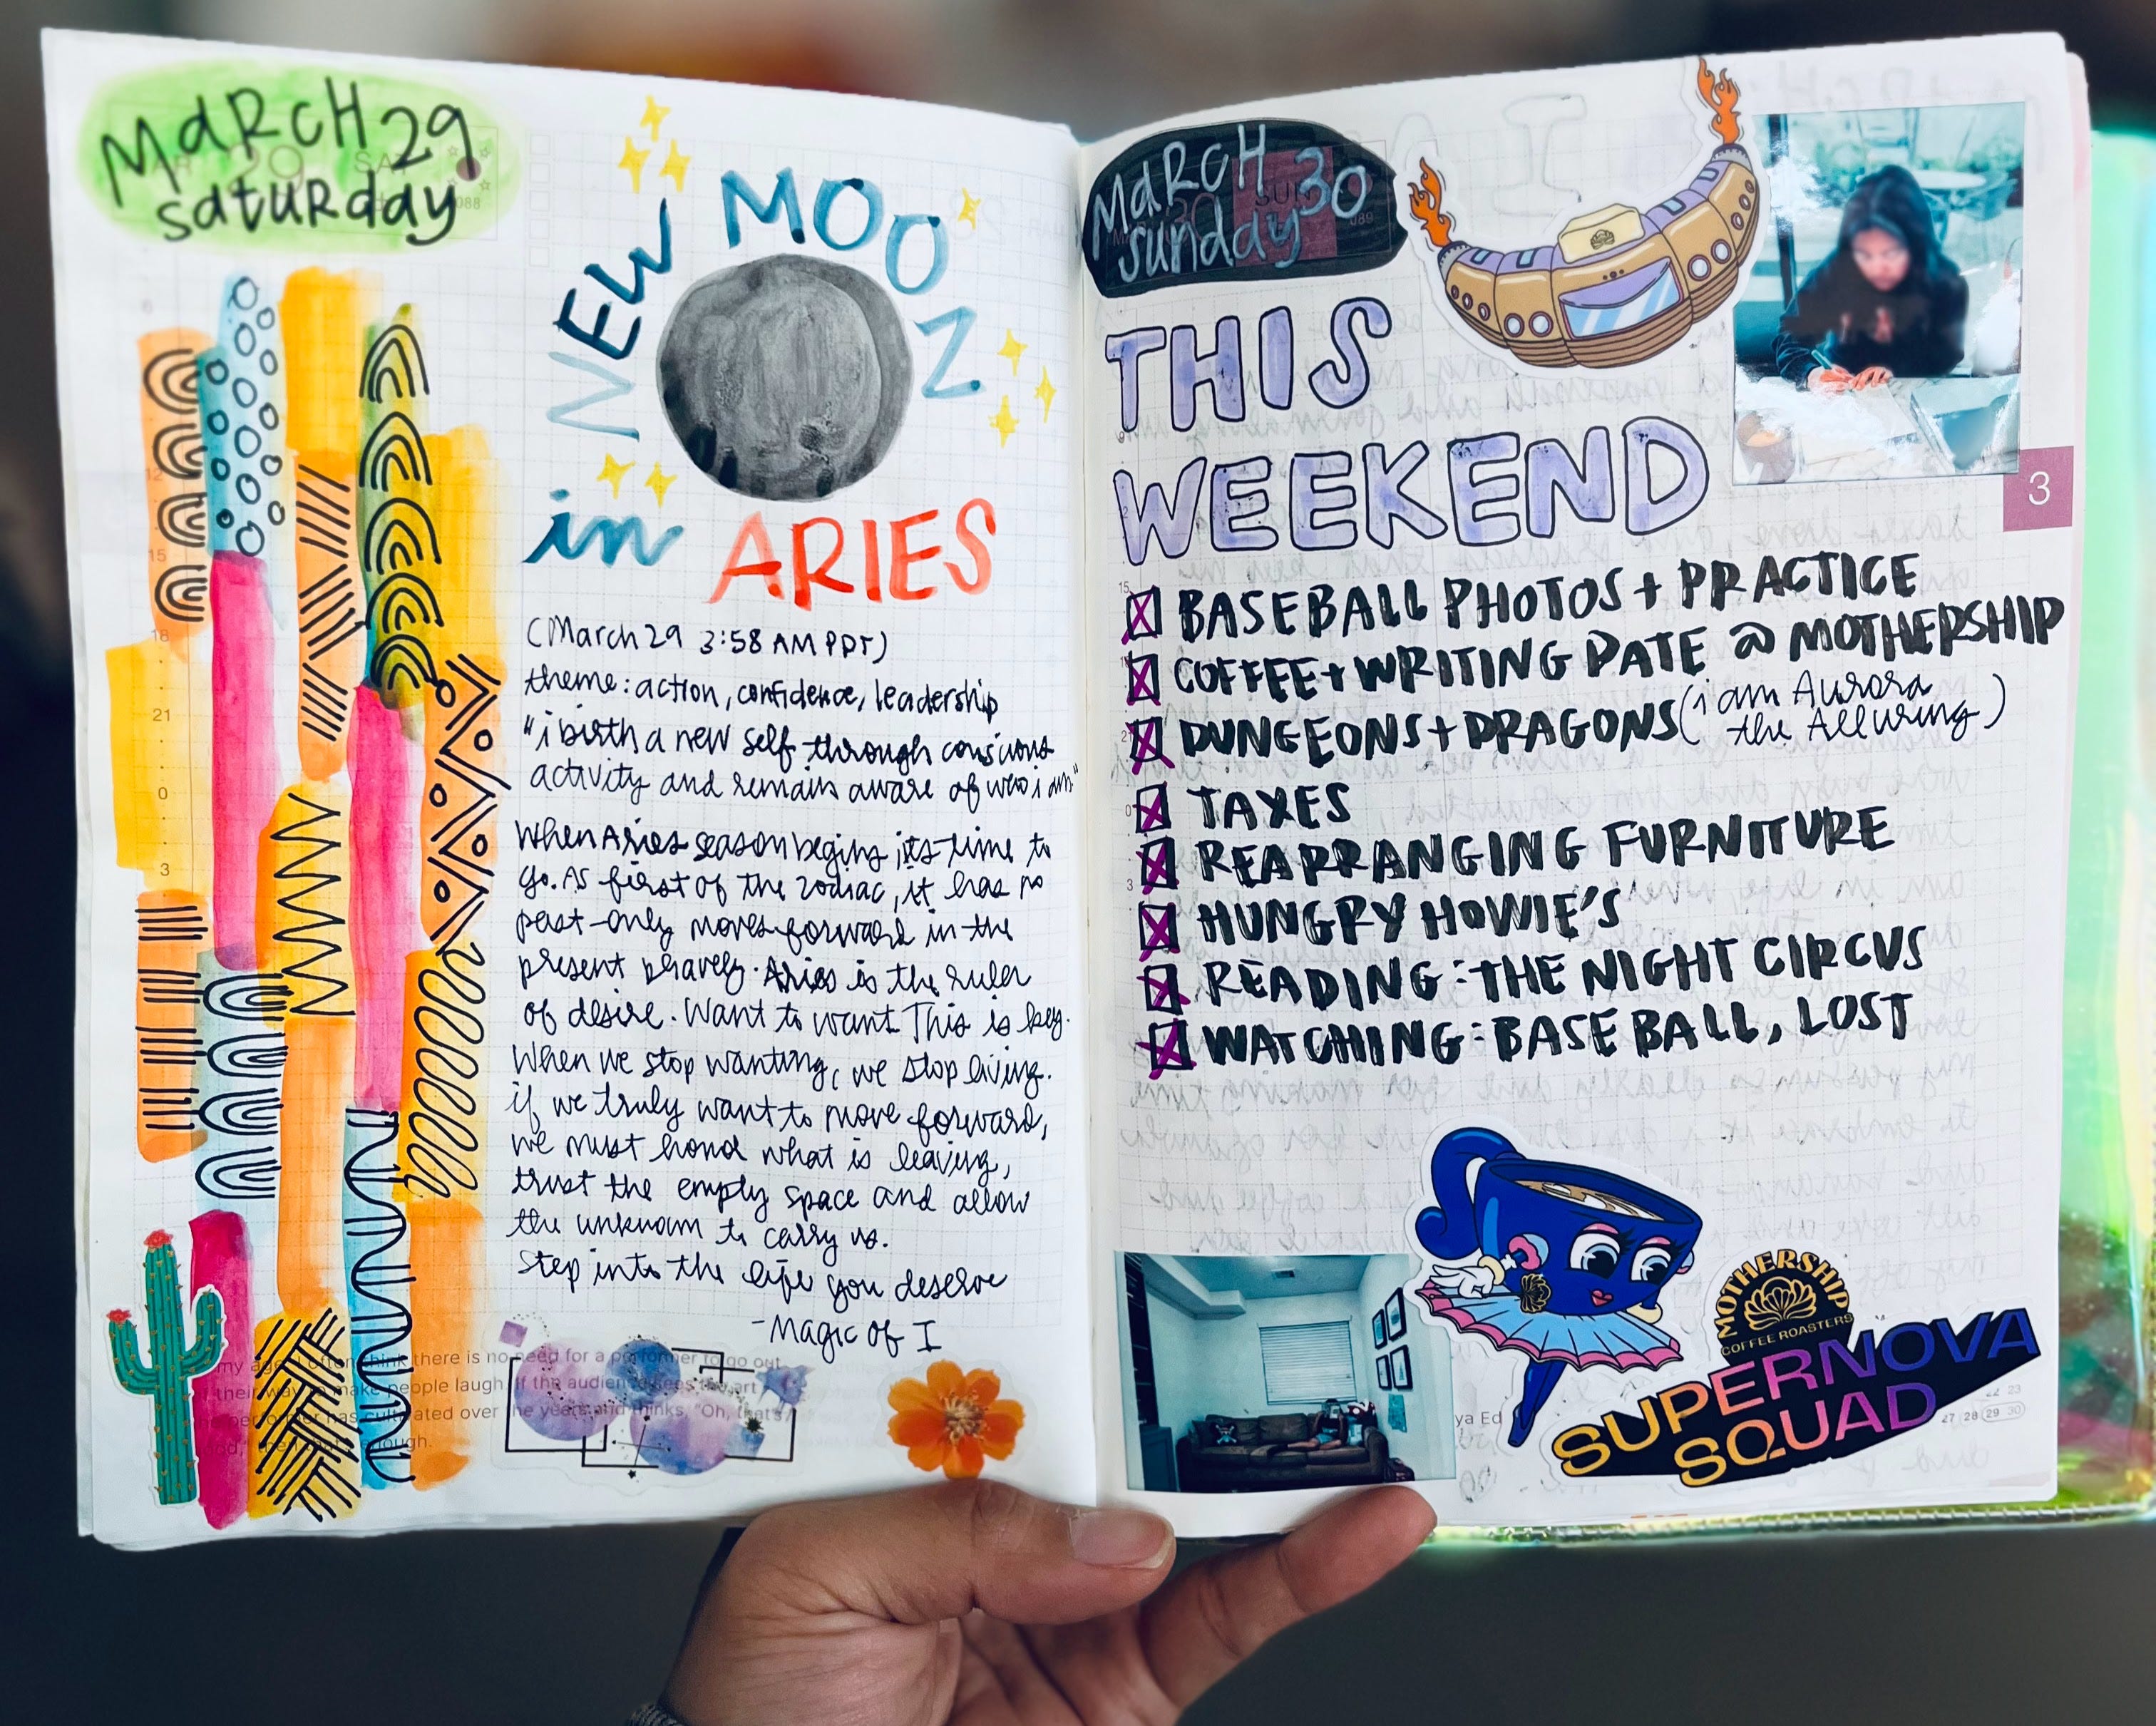 MARCH 29
saturday
NEW MOON
in ARIES
(March 29 3:58 AM PDT)
theme: action, confidence, leadership
"i birth a new self through conscious
activity and remain aware of who i am"
When Aries season begins, its time to
go. As first of the zodiac, it has no
past-only moves forward in the
present bravely. Aries is the ruler
of desire. Want to want This is key.
When we stop wanting, we stop living.
if we truly want to move forward,
we must honor what is leaving,
trust the empty space and allow
the unknown to carry us.
Step into the life you deserve
-Magic of I
my age, I often think there is no need for a performer to go out
their way to make people laugh. If the audience sees the art
performer has cultivated over the years and thinks, "Oh, that's
enough.
6
12
15
18
21
0
3
MARCH 30
sunday
SUN
089
THIS
WEEKEND
3
BASEBALL PHOTOS + PRACTICE
COFFEE + WRITING DATE @ MOTHERSHIP
DUNGEONS + DRAGONS (i am Aurora
the Alluring)
TAXES
REARRANGING FURNITURE
HUNGRY HOWIE'S
READING: THE NIGHT CIRCUS
WATCHING: BASEBALL, LOST
MOTHERSHIP
COFFEE ROASTERS
SUPERNOVA
SQUAD
ya Ed
22 23
27 28 29 30